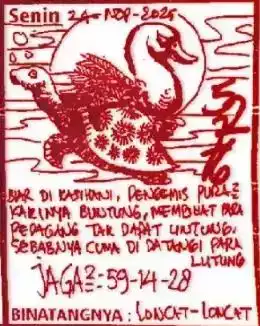 Senin 24-NOP-2025
5276
BIAR DI KASIHANI, PENGEMIS PURA2
KAKINYA BUNTUNG, MEMBUAT PARA
PEDAGANG TAK DAPAT UNTUNG.
SEBABNYA CUMA DI DATANGI PARA
LUTUNG
JAGA2=59-14-28
BINATANGNYA : LONCAT-LONCAT